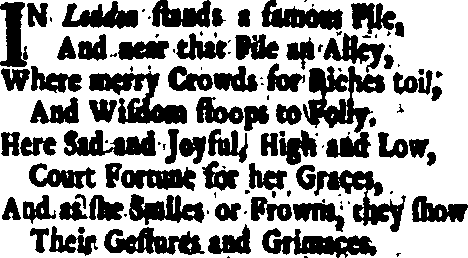 IN London ſtands a famous Pile,
And near that Pile an Alley,
Where merry Crowds for Riches toil,
And Wiſdom ſtoops to Folly.
Here Sad and Joyful, High and Low,
Court Fortune for her Graces,
And as ſhe Smiles or Frowns, they ſhow
Their Geſtures and Grimaces.